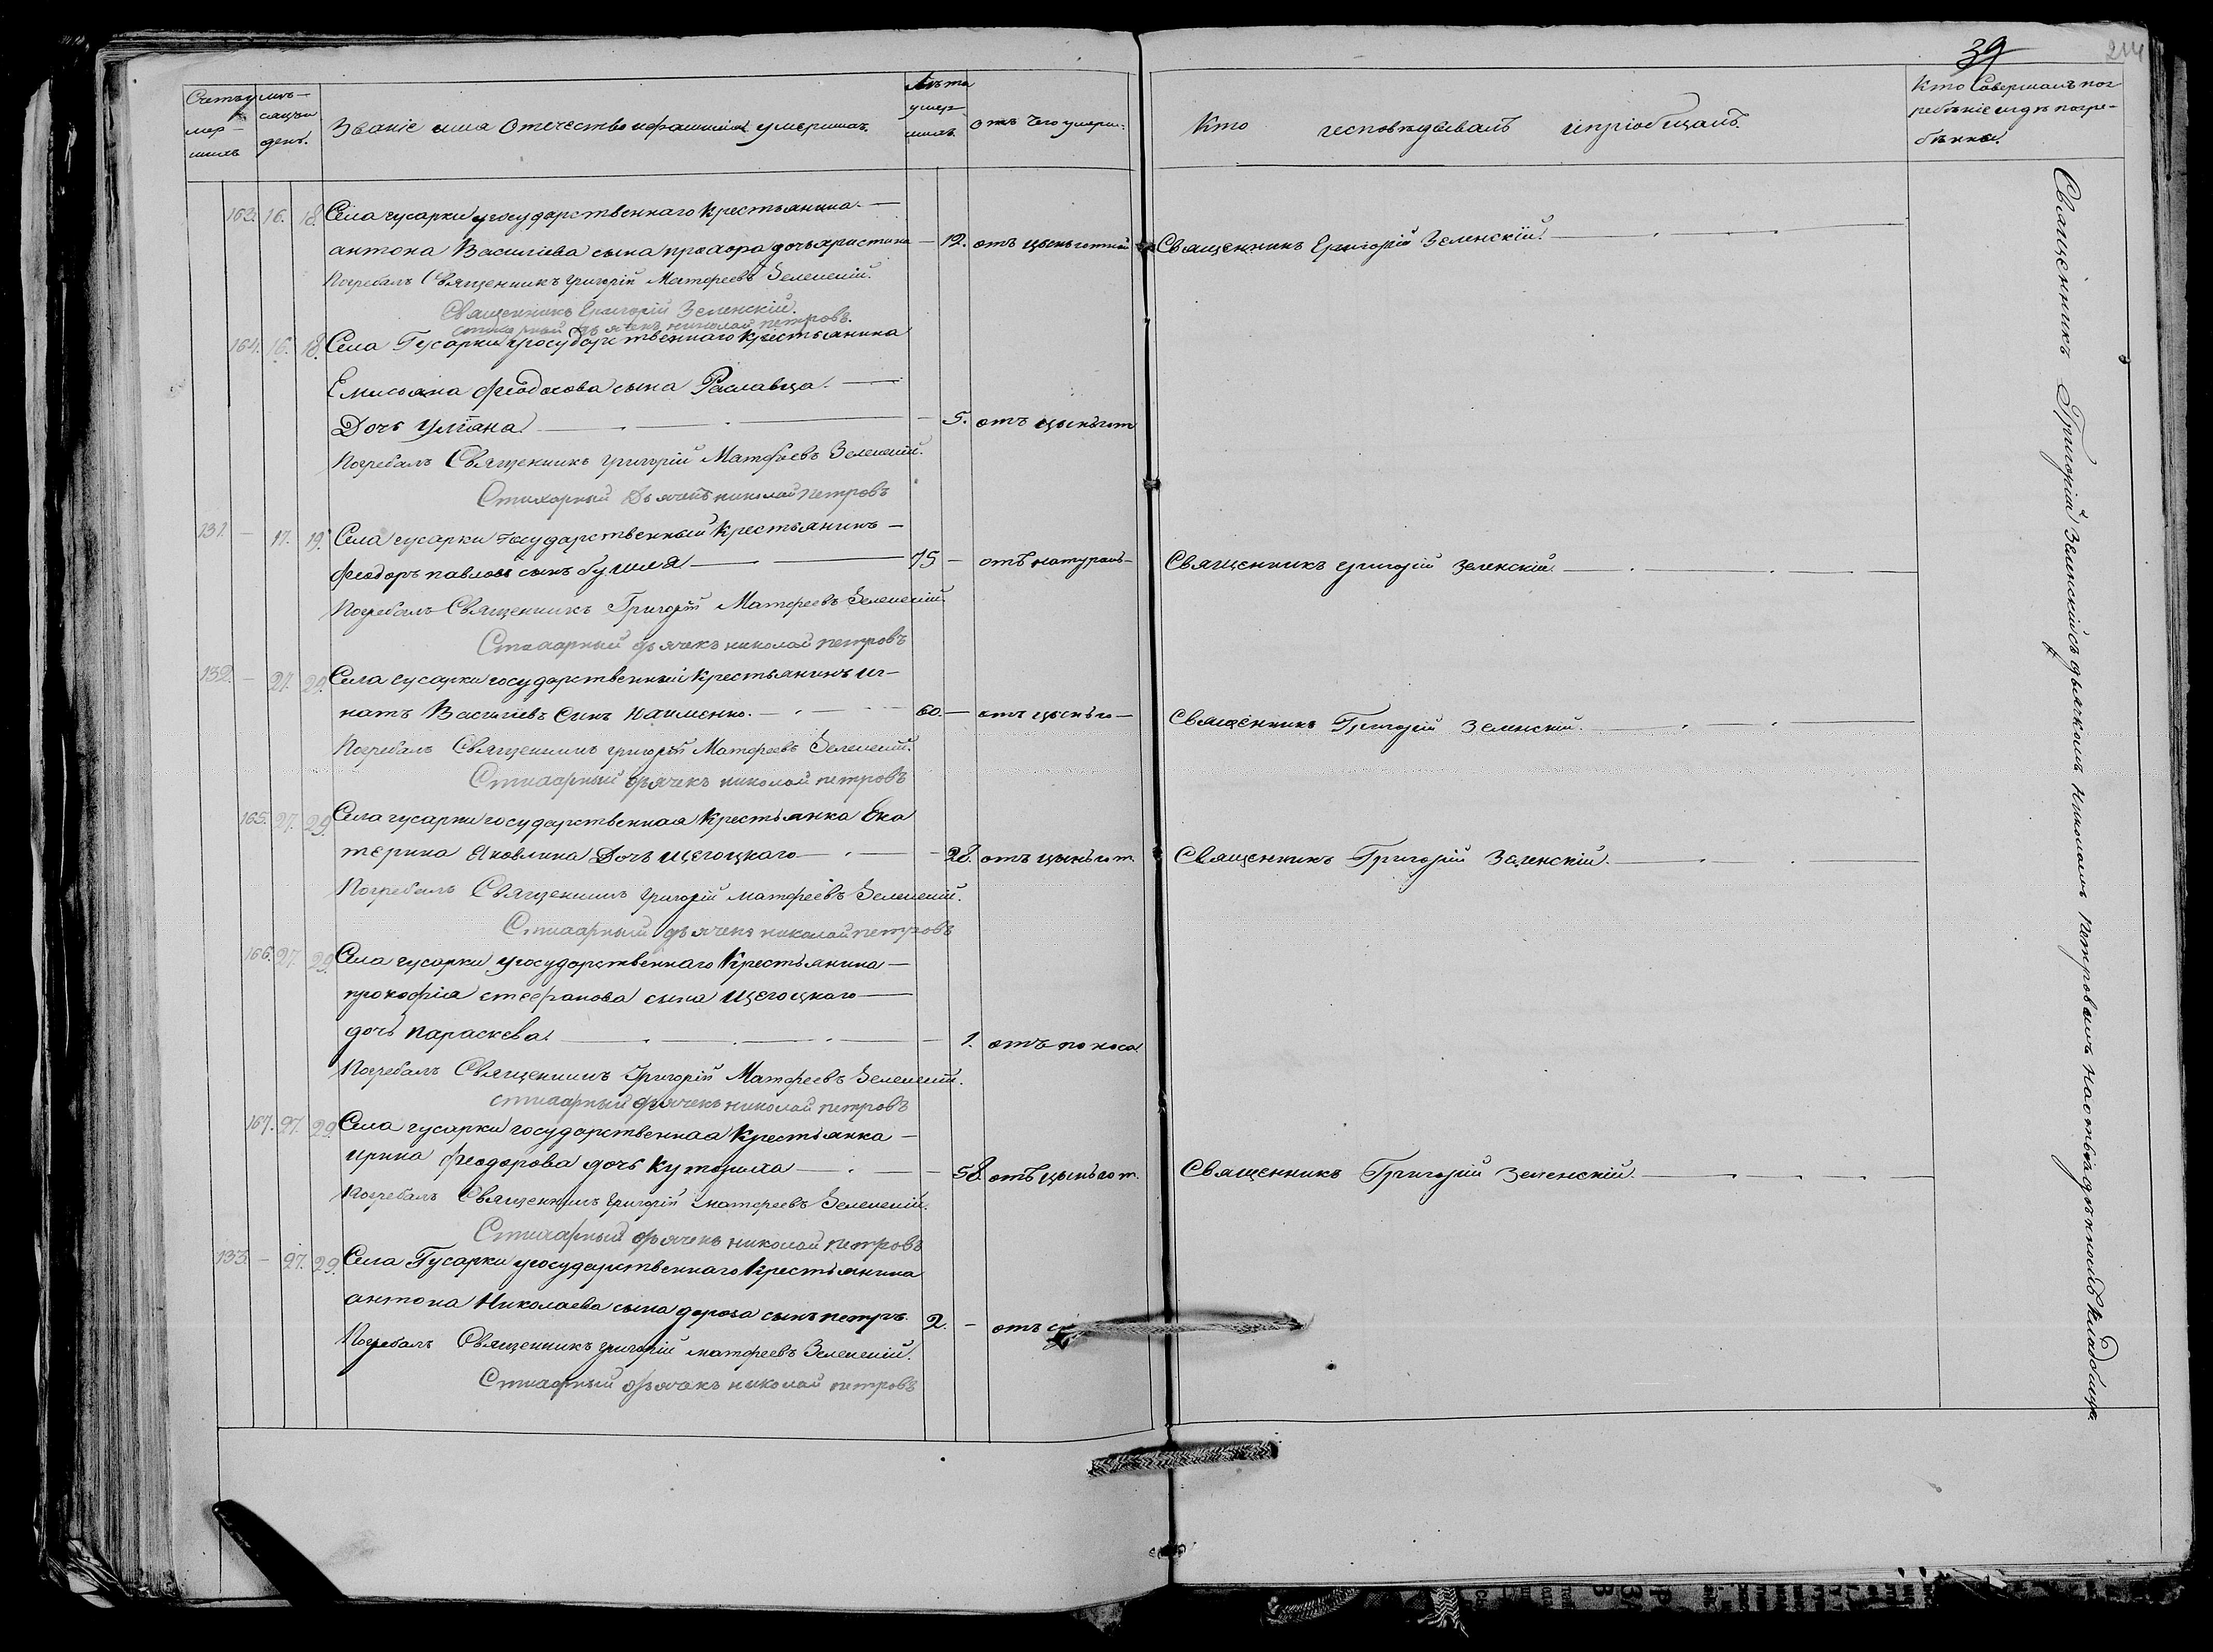 39
214
Счетъ умер-
шихъ
мѣ-
сяцъ и
день.
Званіе имя Отечество и фамилія умершихъ.
Лѣта
умер-
шихъ
отъ чего умерли.
Кто исповѣдывалъ и пріобщалъ.
Кто Совершалъ пог-
ребѣніе и гдѣ погре-
бѣнны.
163. 16. 18. Села гусарки у государственнаго Крестьянина —
антона Василіева сына прохора дочь христина — 12. отъ цынготной Священникъ Григорій Зеленскій.
Погребалъ Священникъ григорій Матфеевъ Зеленскій.
Священникъ Григорій Зеленскій.
стихарный дьячекъ николай петровъ.
164. 16. 18. Села Гусарки у государственнаго крестьянина
Емильяна феодосова сына Раславца. —
Дочь улiана — 5. отъ цынгот
Погребалъ Священникъ григорій Матфеевъ Зеленскій.
Стихарный Дьячекъ николай петровъ
131. — 17. 19. Села гусарки государственный крестьянинъ —
феодоръ павловъ сынъ 75 — отъ натураль- Священникъ григорій зеленскій.
Погребалъ Священникъ Григорій Матфеевъ Зеленскій.
Стихарный дьячекъ николай петровъ
132. — 27. 29. Села гусарки государственный крестьянинъ иг-
натъ Василіевъ Синъ Науменко. — 60. — отъ цынъго— Священникъ Григорій Зеленскій.
Погребалъ Священникъ григорій Матфеевъ Зеленскій.
Стихарный дьячекъ николай петровъ
165. 27. 29. Села гусарки государственная крестьянка Ека
терина Яковлина Дочь щегоцкаго — 28. отъ цынъгот. Священникъ Григорій Зеленскій.
Погребалъ Священникъ григорій матфеевъ Зеленскій.
Стихарный дьячекъ николай петровъ
166. 27. 29. Села гусарки у государственнаго Крестьянина —
прокофія стефанова сына щегоцкаго —
дочь параскева. — 1. отъ поноса
Погребалъ Священникъ Григорій Матфеевъ Зеленскій.
стихарный дьячекъ николай петровъ
167. 27. 29. Села гусарки государственная Крестьянка —
ирина феодорова дочь — 58. отъ цынъгот. Священникъ Григорій Зеленскій.
Погребалъ Священникъ григорій матфеевъ Зеленскій.
Стихарный дьячекъ николай петровъ
133. — 27. 29. Села Гусарки у государственнаго Крестьянина
антона Николаева сына дороза сынъ петръ. 2. — отъ
Погребалъ Священникъ григорій матфеевъ Зеленскій.
Стихарный дьячекъ николай петровъ
Священникъ Григорій Зеленскій съ дьячкомъ николаемъ петровымъ на кладбищѣ